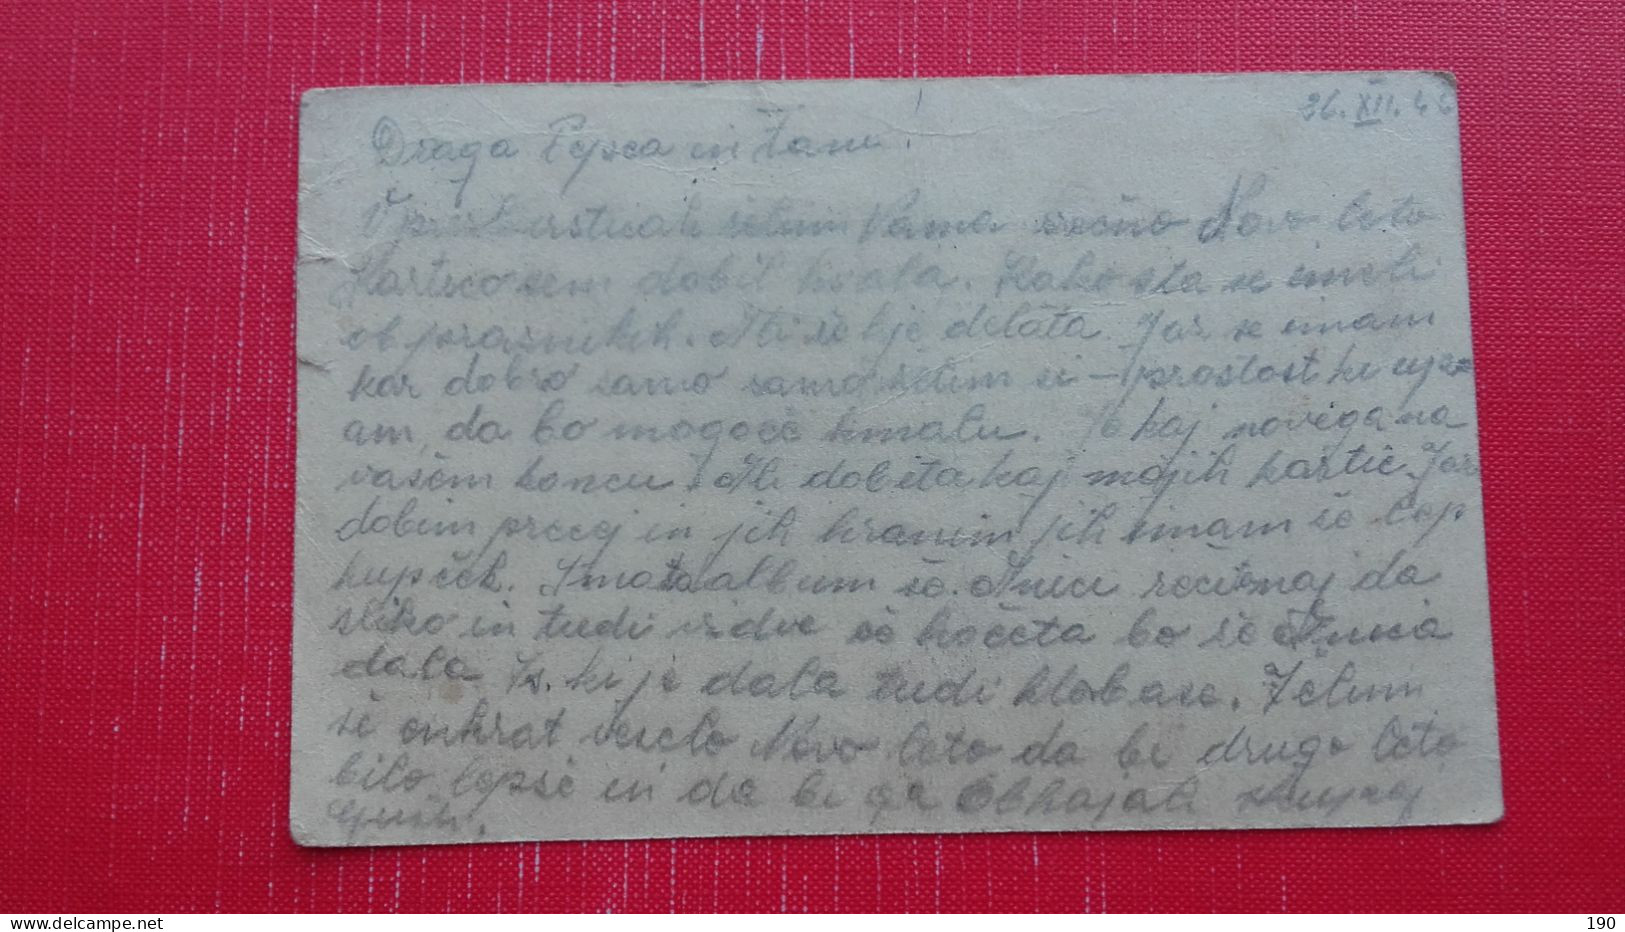 26. XII. 42
Draga Pepca in !
V želim Vama srečno Novo leto
Kartico sem dobil hvala. Kako sta se imeli
ob praznikih. Ali še kje delata. Jaz se imam
kar dobro samo samo želim si – prostost ki upa-
am, da bo mogoče kmalu. Je kaj novega na
vašem koncu. Ali dobita kaj mojih kartic. Jaz
dobim precej in jih hranim jih imam še lep
kupček. Imata album še. Anici recite naj da
sliko in tudi vidve če hočeta bo še Anica
dala ki je dala tudi klobase. Želim
še enkrat veselo Novo leto da bi drugo leto
bilo lepše in da bi ga obhajali skupaj

delcampe.net
190